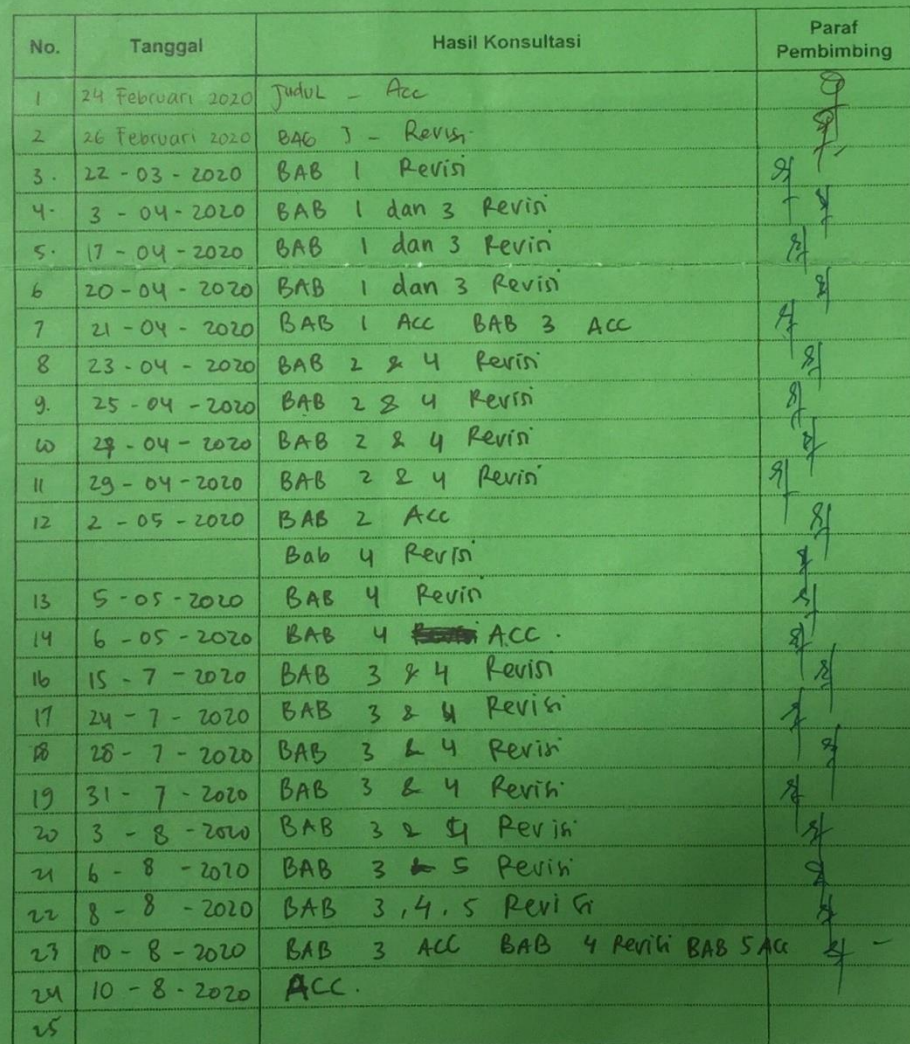 No. Tanggal Hasil Konsultasi Paraf Pembimbing
1 24 Februari 2020 Judul - Acc
2 26 Februari 2020 BAB 3 - Revisi
3. 22 - 03 - 2020 BAB 1 Revisi
4. 3 - 04 - 2020 BAB 1 dan 3 Revisi
5. 17 - 04 - 2020 BAB 1 dan 3 Revisi
6 20 - 04 - 2020 BAB 1 dan 3 Revisi
7 21 - 04 - 2020 BAB 1 Acc BAB 3 Acc
8 23 - 04 - 2020 BAB 2 & 4 Revisi
9. 25 - 04 - 2020 BAB 2 & 4 Revisi
10 - 04 - 2020 BAB 2 & 4 Revisi
11 29 - 04 - 2020 BAB 2 & 4 Revisi
12 2 - 05 - 2020 BAB 2 Acc
Bab 4 Revisi
13 5 - 05 - 2020 BAB 4 Revisi
14 6 - 05 - 2020 BAB 4 ACC.
16 15 - 7 - 2020 BAB 3 & 4 Revisi
17 24 - 7 - 2020 BAB 3 & 4 Revisi
18 28 - 7 - 2020 BAB 3 & 4 Revisi
19 31 - 7 - 2020 BAB 3 & 4 Revisi
20 3 - 8 - 2020 BAB 3 & 4 Revisi
21 6 - 8 - 2020 BAB 3 & 5 Revisi
22 8 - 8 - 2020 BAB 3, 4, 5 Revisi
23 10 - 8 - 2020 BAB 3 ACC BAB 4 Revisi BAB 5 Acc
24 10 - 8 - 2020 ACC.
25